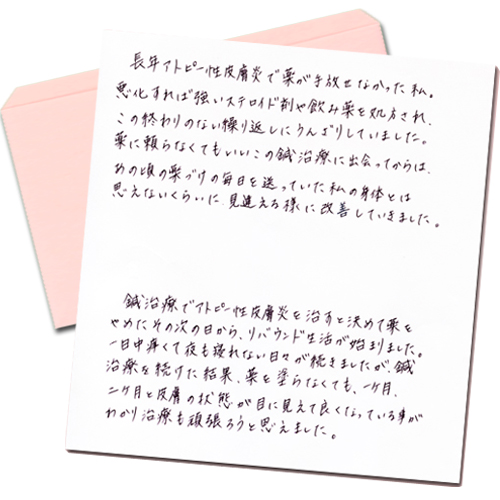 長年アトピー性皮膚炎で薬が手放せなかった私。
悪化すれば強いステロイド剤や飲み薬を処方され、
この終わりのない繰り返しにうんざりしていました。
薬に頼らなくてもいいこの鍼治療に出会ってからは、
あの頃の薬づけの毎日を送っていた私の身体とは
思えないくらいに見違える様に改善していきました。
鍼治療でアトピー性皮膚炎を治すと決めて薬を
やめたその次の日から、リバウンド生活が始まりました。
一日中痒くて夜も寝れない日々が続きましたが、鍼
治療を続けた結果、薬を塗らなくても、一ヶ月、
二ヶ月と皮膚の状態が目に見えて良くなっている事が
わかり治療も頑張ろうと思えました。